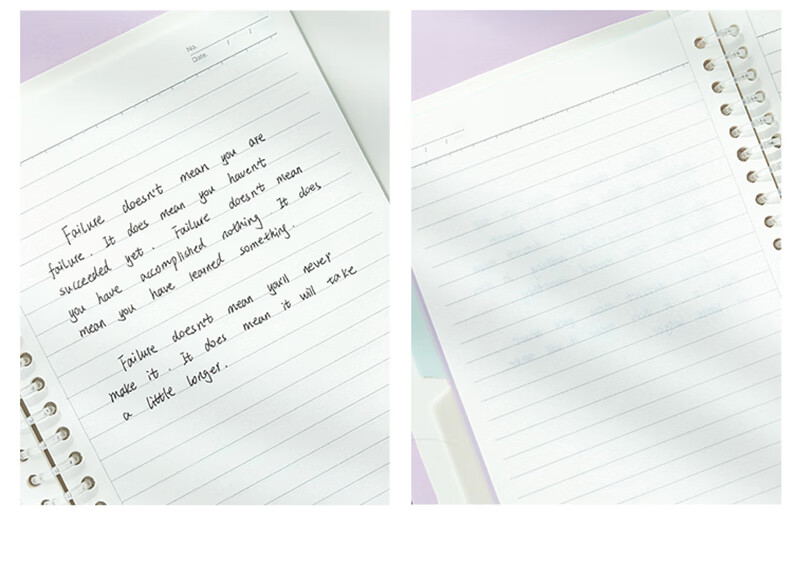 No.
Date.
Failure doesn't mean you are
failure. It does mean you haven't
succeeded yet. Failure doesn't mean
you have accomplished nothing. It does
mean you have learned something.
Failure doesn't mean you'll never
make it. It does mean it will take
a little longer.